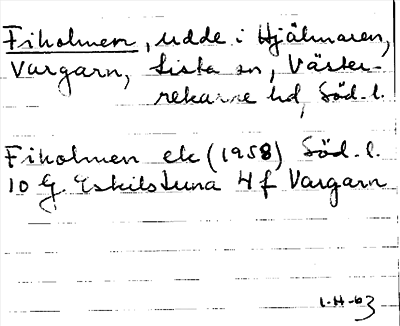 Fiholmen, udde i Hjälmaren,
Vargarn, Lista sn, Väster-
rekarne hd, Söd. l.
Fiholmen ek (1958) Söd. l.
10 G. Eskilstuna 4 f Vargarn
1-H-63